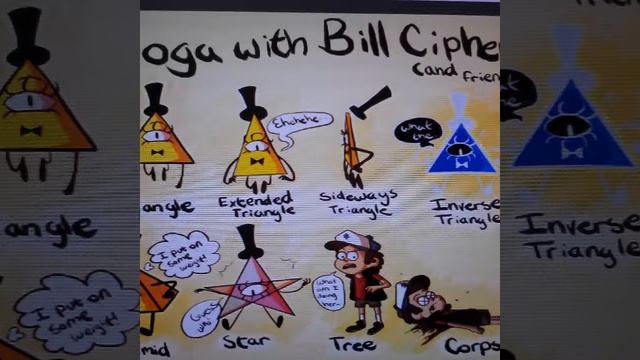 oga with Bill Ciphe
(and frien
Ehehehe
what
the
angle
Extended
Triangle
Sideways
Triangle
Inverse
Triangle
I put on
some
weight!
Guess
who
what
am I
doing
here
mid
Star
Tree
Corps
angle
I put on
some
weight!
what
the
Inverse
Triangle